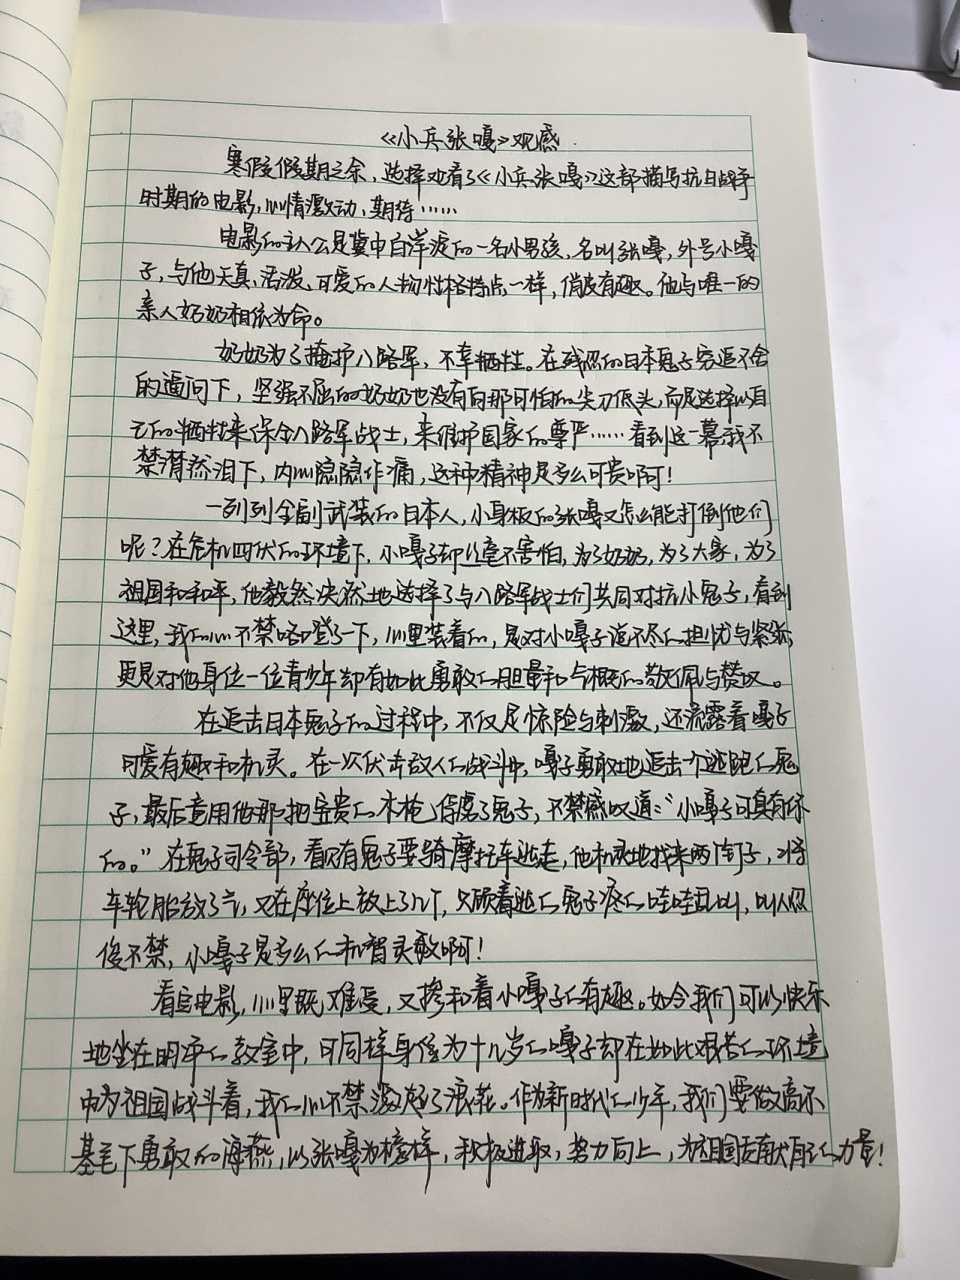 《小兵张嘎》观感
寒假假期之余，选择观看了《小兵张嘎》这部描写抗日战争
时期的电影，心情激动、期待……
电影的主人公是冀中白洋淀的一名小男孩，名叫张嘎，外号小嘎
子，与他天真、活泼、可爱的人物性格特点一样，俏皮有趣。他与唯一的
亲人奶奶相依为命。
奶奶为了掩护八路军，不幸牺牲。在残忍的日本鬼子穷追不舍
的逼问下，坚强不屈的奶奶也没有向那可怕的尖刀低头，而是选择以自
己的牺牲来保全八路军战士，来维护国家的尊严……看到这一幕，我不
禁潸然泪下，内心隐隐作痛，这种精神是多么可贵啊！
一列列全副武装的日本人，小身板的张嘎又怎么能打倒他们
呢？在危机四伏的环境下，小嘎子却丝毫不害怕，为了奶奶，为了大家，为了
祖国和和平，他毅然决然地选择了与八路军战士们共同对抗小鬼子，看到
这里，我的心不禁咯噔了一下，心里装着的，是对小嘎子道不尽的担忧与紧张，
更是对他身位一位青少年却有如此勇敢的胆量和气概的敬佩与赞叹。
在追击日本鬼子的过程中，不仅是惊险与刺激，还流露着嘎子
可爱有趣和机灵。在一次伏击敌人的战斗中，嘎子勇敢地追击一个逃跑的鬼
子，最后竟用他那把宝贵的木枪俘虏了鬼子，不禁感叹道：“小嘎子可真有你
的。”在鬼子司令部，看见有鬼子要骑摩托车逃走，他机灵地找来两个钉子，将
车轮胎放了气，又在座位上放上了几个，只顾着逃的鬼子疼的哇哇乱叫，叫人忍
俊不禁，小嘎子是多么的机智灵敏啊！
看完电影，心里既难受，又掺和着小嘎子的有趣。如今我们可以快乐
地坐在明净的教室中，可同样身位为十几岁的嘎子却在如此艰苦的环境
中为祖国战斗着，我的心不禁激起了浪花。作为新时代的少年，我们要做高尔
基笔下勇敢的海燕，以张嘎为榜样，积极进取，努力向上，为祖国贡献自己的力量！